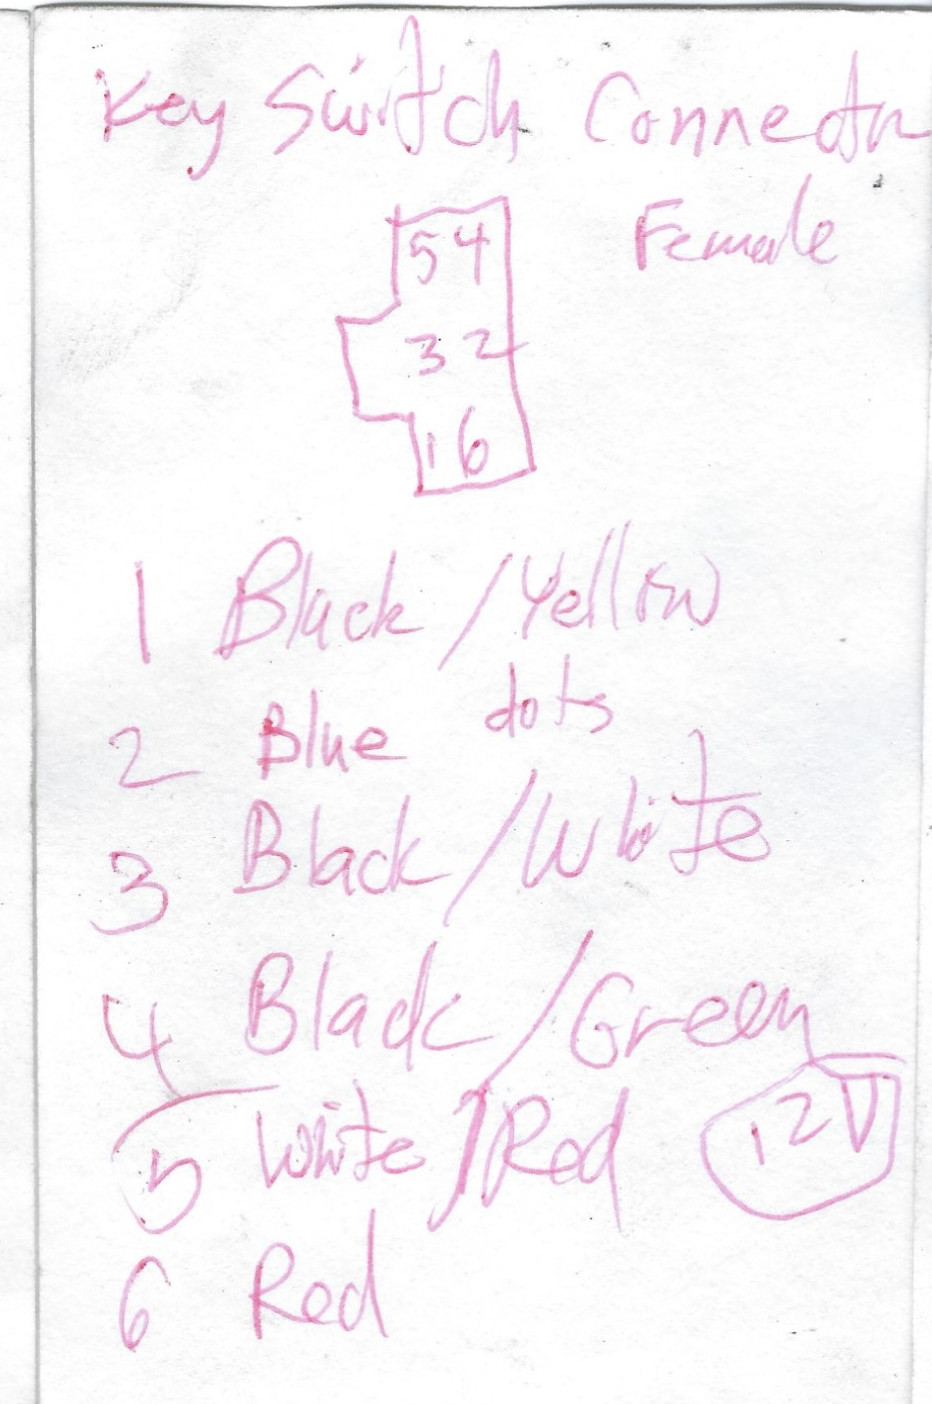 Key Switch Connector
Female
54
32
16
1 Black/Yellow
dots
2 Blue
3 Black/White
4 Black/Green
5 White/Red 12V
6 Red